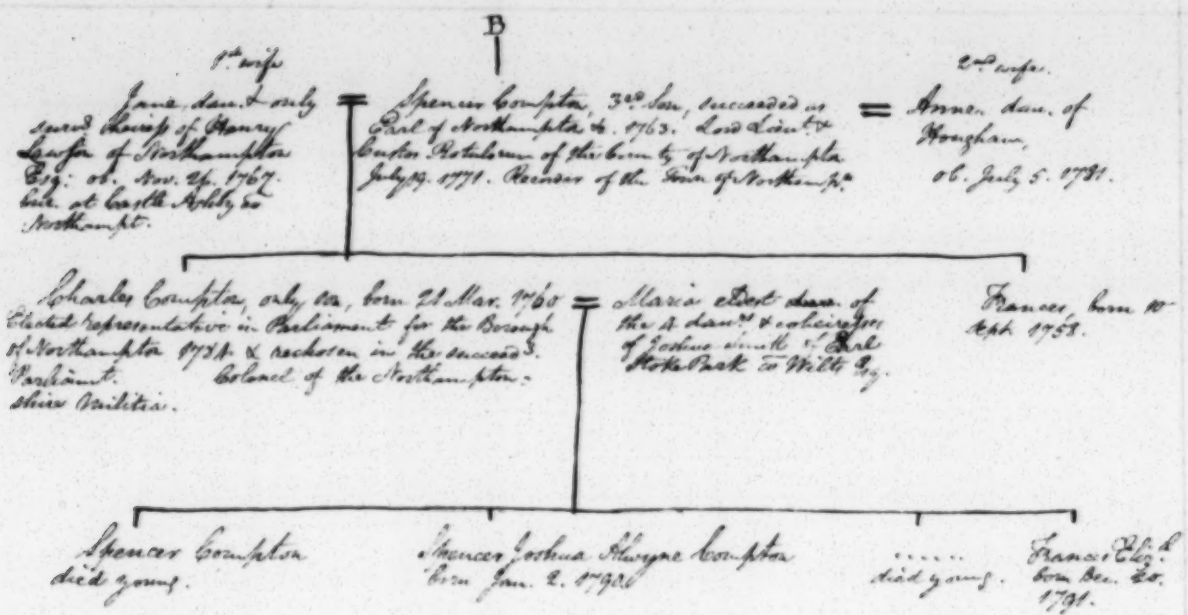 B
1st wife
Jane, dau. & only
surv'd heiress of Henry
Lawson of Northampton
Esq: ob. Nov. 26. 1767.
bur. at Castle Ashby co
Northampt.
Spencer Compton, 3rd Son, succeeded as
Earl of Northampton &c. 1763. Lord Lieut. &
Custos Rotulorum of the County of Northampton
July 19. 1771. Recorder of the Town of Northampn
2nd wife.
Anne, dau. of
Hougham,
ob. July 5. 1781.
Charles Compton, only son, born 21 Mar. 1760
Elected representative in Parliament for the Borough
of Northampton 1784 & rechosen in the succeedg.
Parliamt. Colonel of the Northampton-
shire Militia.
Maria eldest dau. of
the 4 daurs. & coheiresses
of Joshua Smith of Earl
Stoke Park co Wilts Esq.
Frances, born 10
Sept. 1758.
Spencer Compton
died young.
Spencer Joshua Alwyne Compton
born Jan. 2. 1790.
......
died young.
Frances Elizth.
born Dec. 20.
1791.